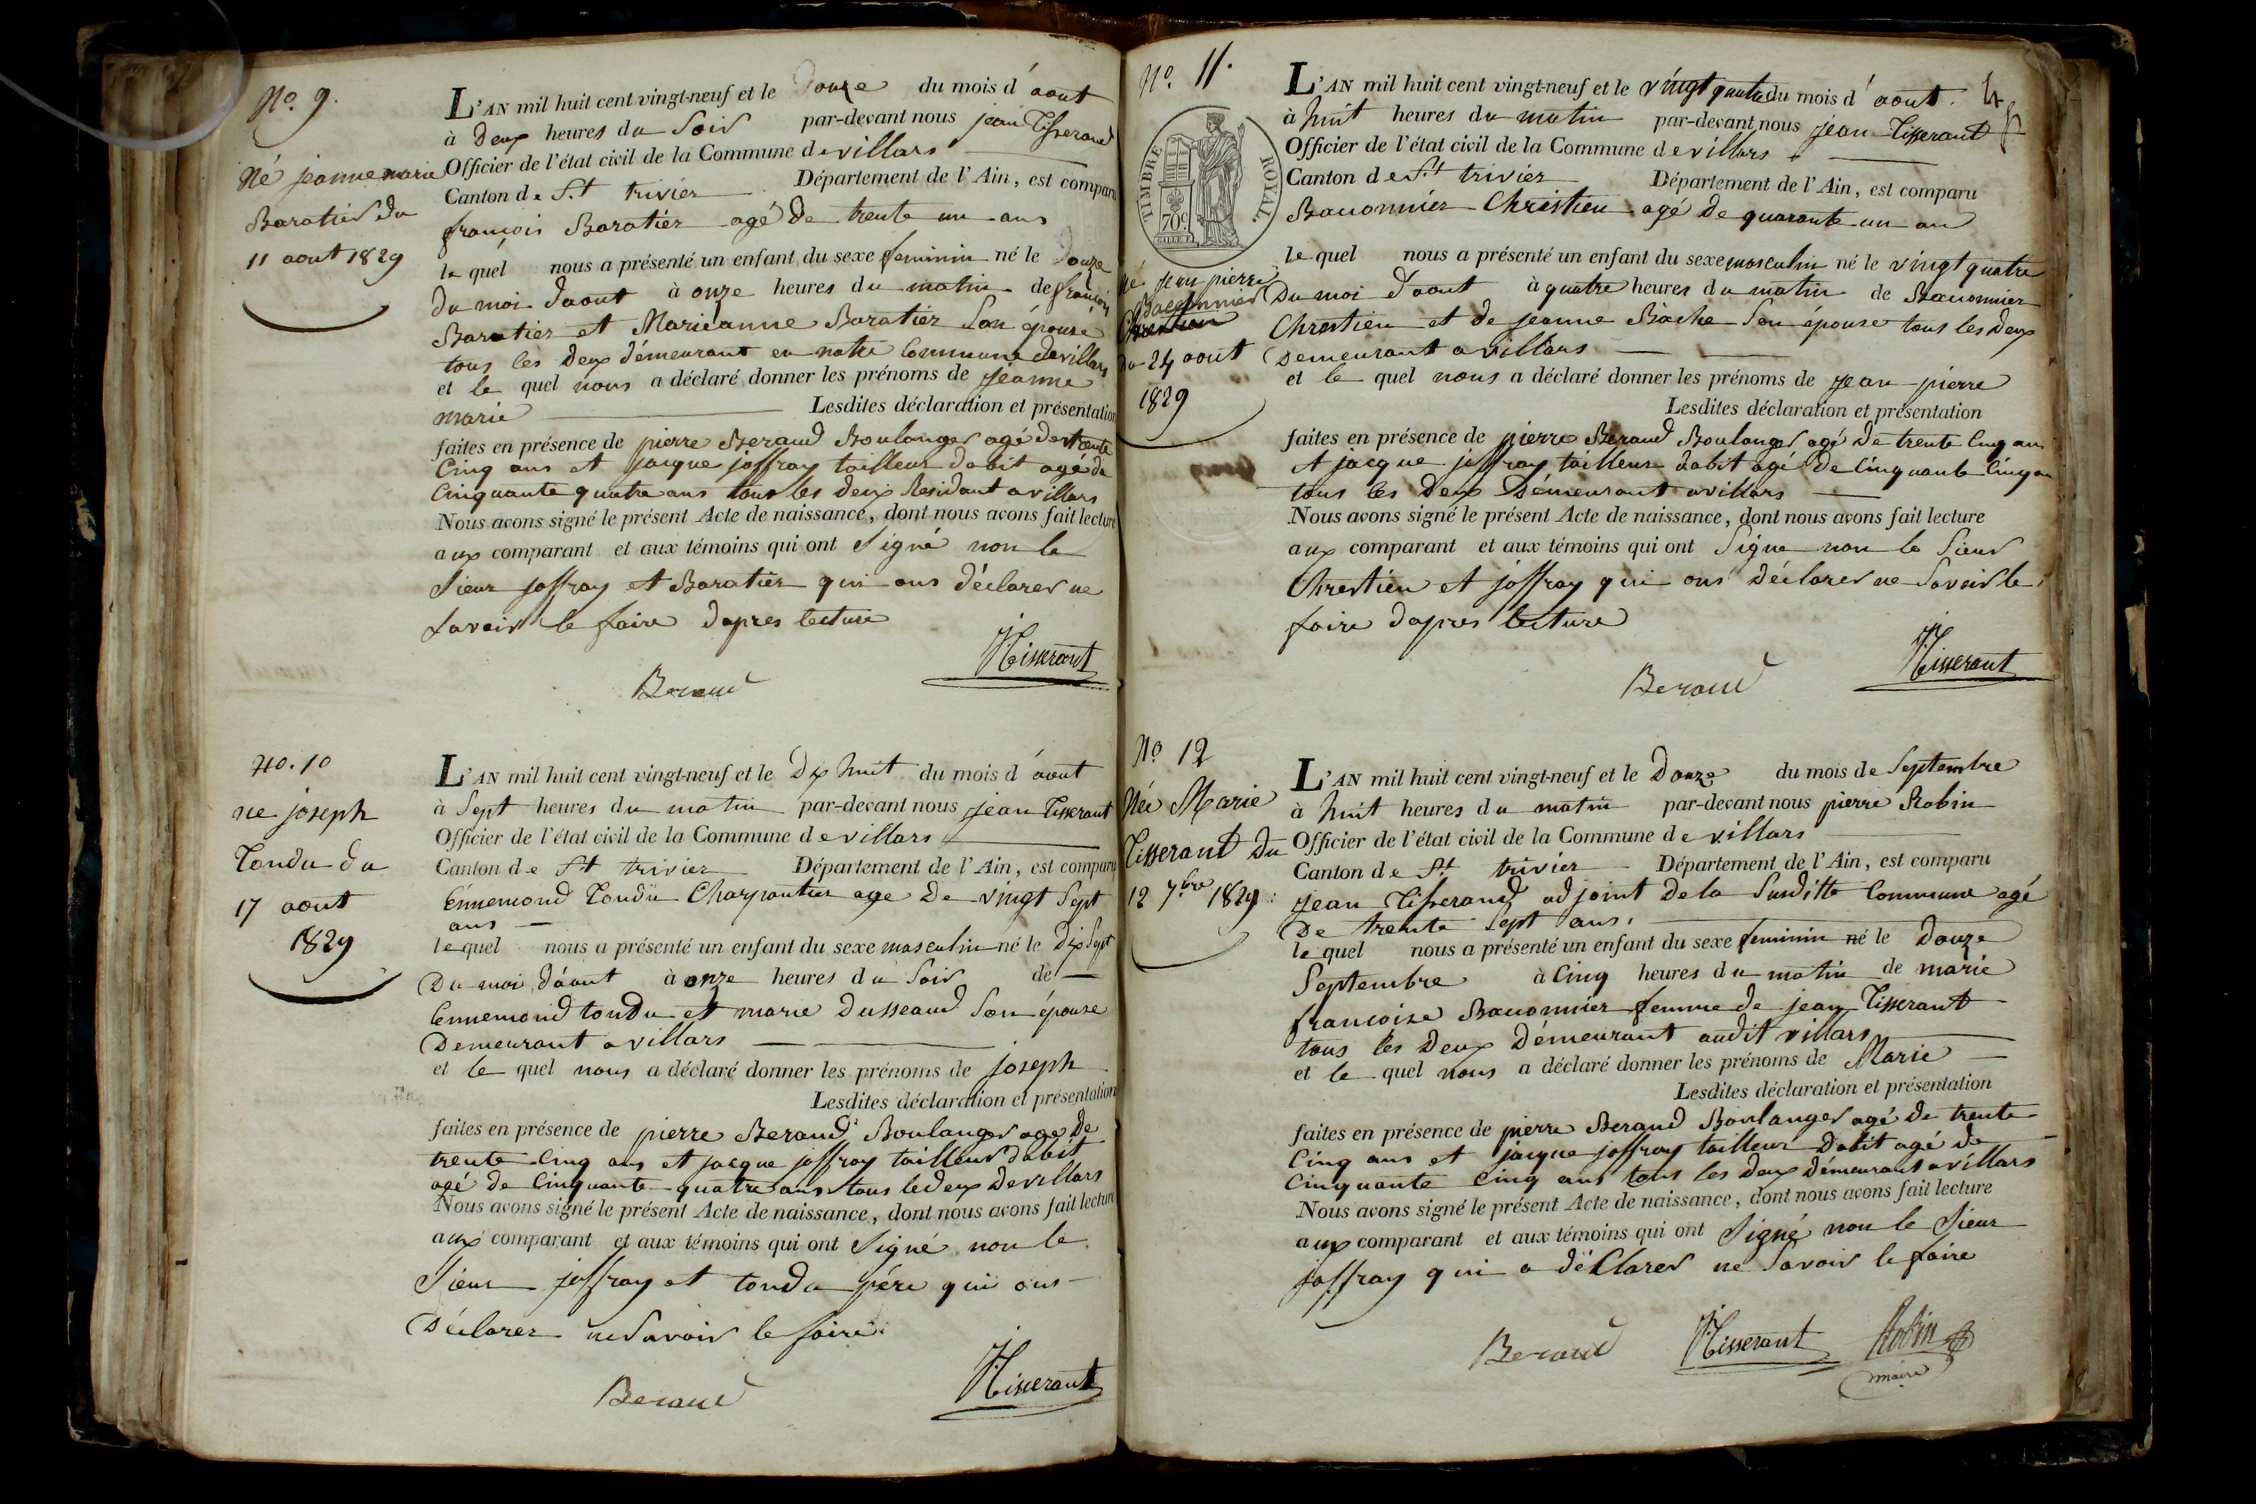 No. 9.
Né jeanne marie
Baratier du
11 aout 1829
L'AN mil huit cent vingt-neuf et le douze du mois d'aout
à deux heures du soir par-devant nous jean Tisserand
Officier de l'état civil de la Commune de villars
Canton de St trivier Département de l'Ain, est comparu
françois Baratier agé de trente un ans
le quel nous a présenté un enfant du sexe feminin né le douze
du moi daout à onze heures du matin de françois
Baratier et Marieanne Baratier son épouse
tous les deux démeurant en notre Commune de villars
et le quel nous a déclaré donner les prénoms de jeanne
marie Lesdites déclaration et présentation
faites en présence de pierre Beraud Boulanger agé de trente
Cinq ans et jacque joffray tailleur dabit agé de
Cinquante quatre ans tous les deux Residant a villars
Nous avons signé le présent Acte de naissance, dont nous avons fait lecture
aux comparant et aux témoins qui ont Signé non le
Sieur joffray et Baratier qui ons déclarer ne
savoir le faire dapres lecture
JTisserant
Beraud
No. 10
ne joseph
Tondu du
17 aout
1829
L'AN mil huit cent vingt-neuf et le Dix huit du mois d'aout
à Sept heures du matin par-devant nous jean Tisserant
Officier de l'état civil de la Commune de villars
Canton de St trivier Département de l'Ain, est comparu
Ennemond Tondu Charpantier age De vingt Sept
ans
lequel nous a présenté un enfant du sexe masculin né le Dix Sept
Du moi d'aout à onze heures du Soir de
Ennemond tondu et marie Dusseaud Son épouse
Demeurant a villars
et le quel nous a déclaré donner les prénoms de joseph
Lesdites déclaration et présentation
faites en présence de pierre Beraud Boulanger age De
trente Cinq ans et jacque joffray tailleur dabit
agé de Cinquante quatre ans tous le deux De villars
Nous avons signé le présent Acte de naissance, dont nous avons fait lecture
aux comparant et aux témoins qui ont Signé non le
Sieur joffray et tondu pére qui ons
Déclarer ne Savoir le faire
JTisserant
Beraud
No. 11.
TIMBRE ROYAL.
70c.
né Jean pierre
Baconnier
Chrestien
du 24 aout
1829
L'AN mil huit cent vingt-neuf et le vingt quatre du mois d'aout.
à huit heures du matin par-devant nous jean Tisserant
Officier de l'état civil de la Commune de villars
Canton de St trivier Département de l'Ain, est comparu
Baconnier Chrestien agé de quarante un an
le quel nous a présenté un enfant du sexe masculin né le vingt quatre
Du moi d'aout à quatre heures du matin de Baconnier
Chrestien et de jeanne Bäche Son épouse tous les deux
Demeurant a villars
et le quel nous a déclaré donner les prénoms de jean pierre
Lesdites déclaration et présentation
faites en présence de pierre Beraud Boulanger agé de trente Cinq ans
et jacque joffray tailleur dabit agé de Cinquante Cinq an
tous les deux Démeurant a villars
Nous avons signé le présent Acte de naissance, dont nous avons fait lecture
aux comparant et aux témoins qui ont Signe non le Sieur
Chrestien et joffray qui ons déclarer ne Savoir le
faire dapres lecture
JTisserant
Beraud
No. 12
Née Marie
Tisserant Du
12 7.bre 1829
L'AN mil huit cent vingt-neuf et le Douze du mois de Septembre
à huit heures du matin par-devant nous pierre Robin
Officier de l'état civil de la Commune de villars
Canton de St. trivier Département de l'Ain, est comparu
jean Tisserand adjoint De la Susditte Commune agé
De trente Sept ans.
le quel nous a présenté un enfant du sexe feminin né le Douze
Septembre à Cinq heures du matin de marie
francoise Baconnier femme de jean Tisserant
tous les Deux Démeurant audit villars
et le quel nous a déclaré donner les prénoms de Marie
Lesdites déclaration et présentation
faites en présence de pierre Beraud Boulanger agé de trente
Cinq ans et jacque joffray tailleur Dabit agé de
Cinquante Cinq ans tous les deux démeurans a villars
Nous avons signé le présent Acte de naissance, dont nous avons fait lecture
aux comparant et aux témoins qui ont Signé non le Sieur
joffray qui a déClarer ne Savoir le faire
Beraud JTisserant Robin
maire